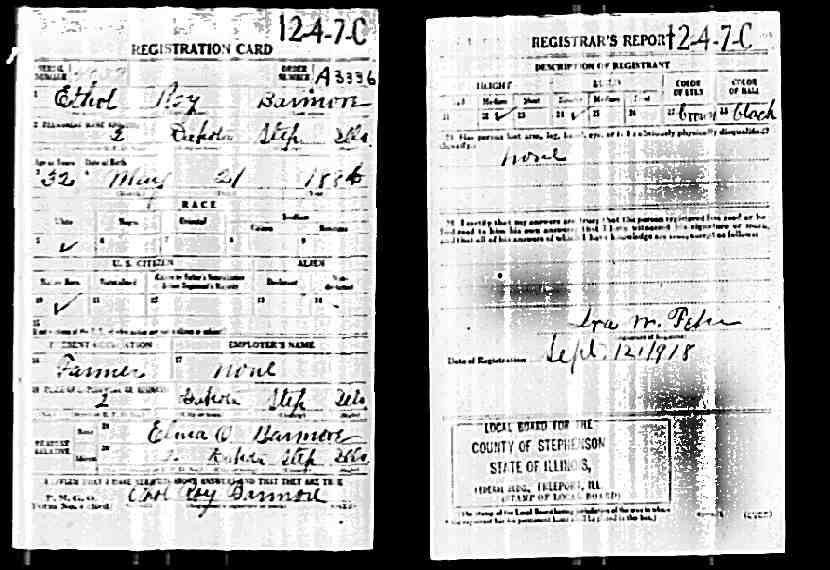 12-4-7-C
REGISTRATION CARD
SERIAL NUMBER ORDER NUMBER A3336
1 Ethol Roy Barmore
2 PERMANENT HOME ADDRESS
2 Dakota Step Ills.
Age in Years Date of Birth
3 32 4 May 21 1886
RACE
White Negro Oriental Indian
Citizen
5 ✓ 6 7 8 9
U. S. CITIZEN ALIEN
Native Born Naturalized Citizen by Father's Naturalization Before Registrant's Majority Declarant Non-declarant
10 ✓ 11 12 13 14
15
PRESENT OCCUPATION EMPLOYER'S NAME
16 Farmer 17 None
2 Dakota Step Ills.
NEAREST RELATIVE Name 19 Elma O Barmore
Address 20 2. Dakota Step Ills.
I AFFIRM THAT I HAVE VERIFIED ABOVE ANSWERS AND THAT THEY ARE TRUE
P. M. G. O.
Form No. 1 Ethol Roy Barmore
REGISTRAR'S REPORT 12-4-7-C
DESCRIPTION OF REGISTRANT
HEIGHT BUILD COLOR OF EYES COLOR OF HAIR
Tall Medium Short Slender Medium Stout
21 22 ✓ 23 24 ✓ 25 26 27 brown 28 black
29 Has person lost arm, leg, hand, eye, or is he obviously physically disqualified?
(Specify.)
None
30 I certify that my answers are true; that the person registered has read or has
had read to him his own answers; that I have witnessed his signature or mark,
and that all of his answers of which I have knowledge are true, except as follows:
Ira M.
(Signature of Registrar)
Date of Registration Sept. 12, 1918
LOCAL BOARD FOR THE
COUNTY OF STEPHENSON
STATE OF ILLINOIS,
FEDERAL BLDG., FREEPORT, ILL.
(STAMP OF LOCAL BOARD)
(The stamp of the Local Board having jurisdiction of the area in which
the registrant has his permanent home shall be placed in this box.)
(OVER)